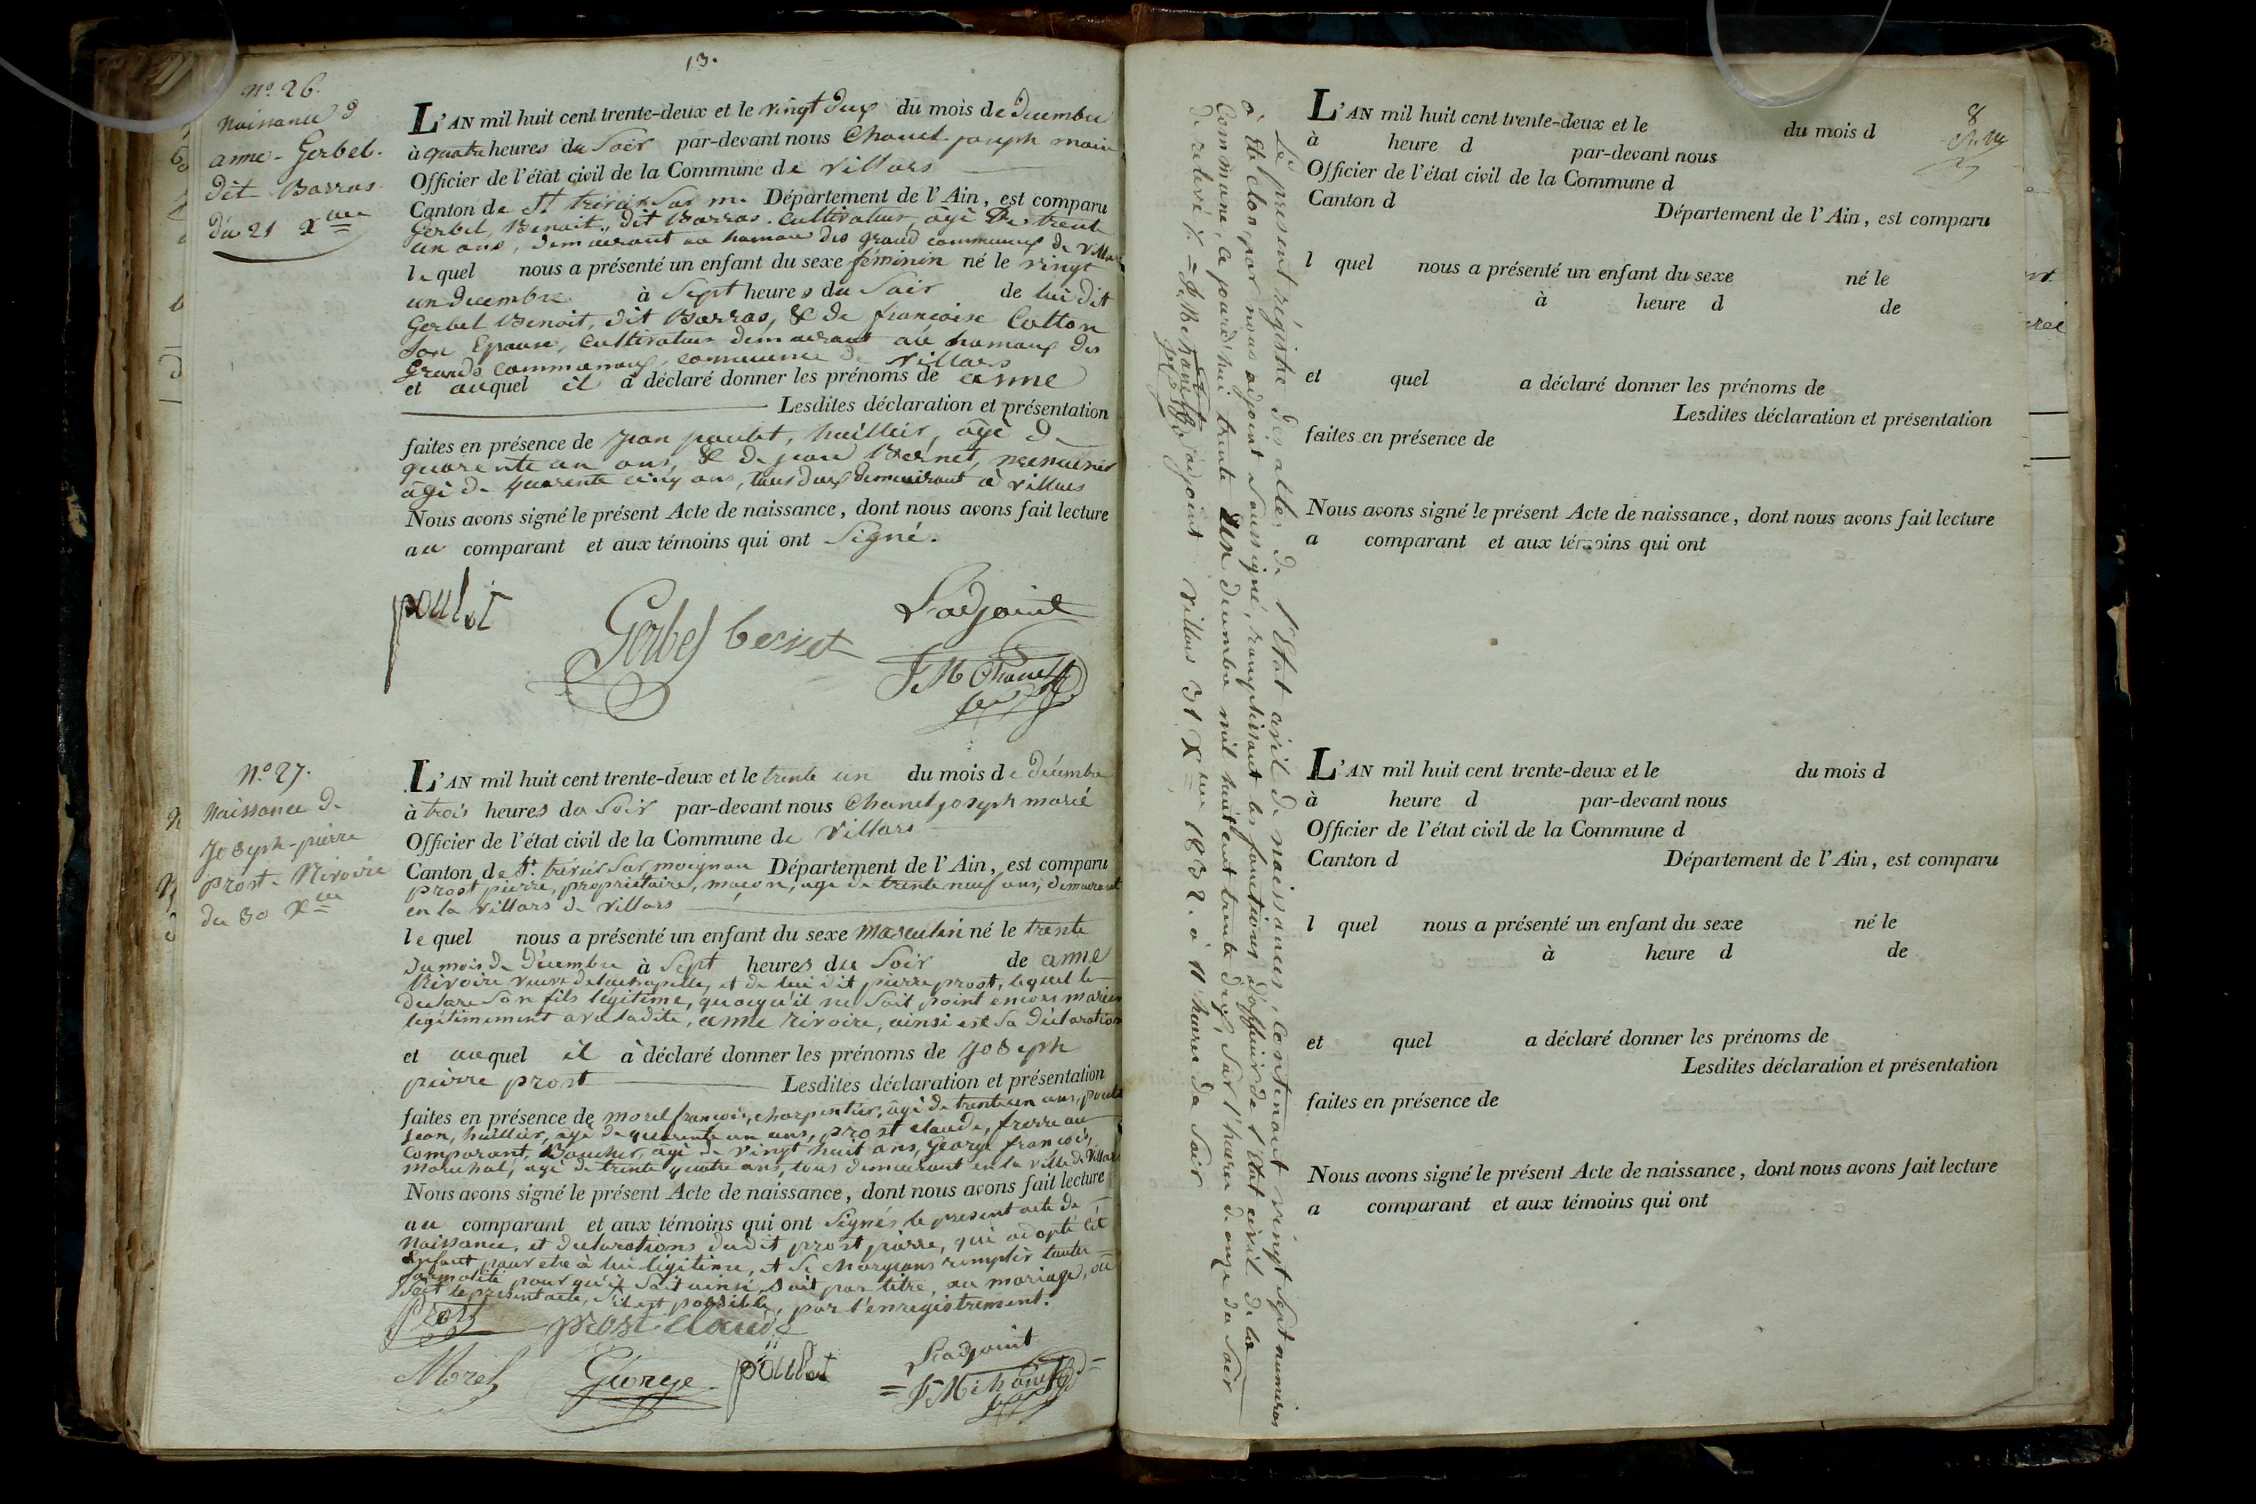 13.
N.º 26.
Naissance d
anne - Gerbel.
dit Barras.
du 21 Xbre
L'AN mil huit cent trente-deux et le vingt deux du mois de decembre
à quatre heures du Soir par-devant nous Chanel joseph marie
Officier de l'état civil de la Commune de Villars
Canton de St trivier Sur m. Département de l'Ain, est comparu
Gerbel, Benoit, dit Barras. Cultivateur, âgé de trente
un ans, demeurant au hameau des grand communeux de Villars
lequel nous a présenté un enfant du sexe féminin né le vingt
un decembre à Sept heures du Soir de lui dit
Gerbel Benoit, dit Barras, & de françoise Catton
Son Epouse, Cultivateur demeurant au hameaux des
Grands Communaux, commune de Villars
et auquel il a déclaré donner les prénoms de anne
Lesdites déclaration et présentation
faites en présence de jean poulet, huillier, âgé d
quarente un ans, & de jean Bernet, menuisier
âgé de quarente cinq ans, tous deux demeurant à villars
Nous avons signé le présent Acte de naissance, dont nous avons fait lecture
au comparant et aux témoins qui ont Signé.
poulet Gerbel bernet L'adjoint
J M Chanel
N.º 27.
Naissance de
Joseph-pierre
prost - Rivoire
du 30 Xbre
L'AN mil huit cent trente-deux et le trente un du mois de décembre
à trois heures du Soir par-devant nous Chanel joseph marié
Officier de l'état civil de la Commune de Villars
Canton de St. trivier Sur moignan Département de l'Ain, est comparu
prost pierre, propriétaire, maçon, age de trente neuf ans, demeurant
en la villars de Villars
lequel nous a présenté un enfant du sexe masculin né le trente
du mois de décembre à Sept heures du Soir de anne
Rivoire veuve delachapelle, et de lui dit pierre prost, lequel le
declare Son fils légitime, quoiqu'il ne Soit point encore marier
legitimement avec ladite, anne rivoire, ainsi est Sa déclaration
et auquel il a déclaré donner les prénoms de joseph
pierre prost Lesdites déclaration et présentation
faites en présence de morel françois, charpentier, âgé de trente un ans, poulet
jean, huillier, agé de quarente un ans, prost claude, frere au
Comparant, Boucher, âgé de vingt huit ans, George françois,
marechal, agé de trente quatre ans, tous demeurant en la ville de Villars
Nous avons signé le présent Acte de naissance, dont nous avons fait lecture
au comparant et aux témoins qui ont Signés le present acte de
Naissance, et declarations dudit prost pierre, qui adopté cet
Enfant pour etre à lui légitime, et Se chargeons remplir toutes
formalité pour qu'il Soit ainsi, Soit par titre, au mariage, ou
Soit le present acte, S'il est possible, par l'enregistrement.
Prost prost claude
Morel George poulet L'adjoint
J M Chanel
Le présent régistre des actes de l'Etat civil de naissances, Contenant vingt sept numéros
a Eté Clos par nous adjoint Soussigné, remplissant les fonctions d'officier de l'Etat civil de la
Commune, Ce jourd'hui trente un decembre mil huit cent trente deux, Sur l'heure de onze du Soir
J M Chanel adjoint Villars 31 Xbre 1832. à 11 heures du Soir
8
L'AN mil huit cent trente-deux et le du mois d
à heure d par-devant nous
Officier de l'état civil de la Commune d
Canton d Département de l'Ain, est comparu
l quel nous a présenté un enfant du sexe né le
à heure d de
et quel a déclaré donner les prénoms de
Lesdites déclaration et présentation
faites en présence de
Nous avons signé le présent Acte de naissance, dont nous avons fait lecture
a comparant et aux témoins qui ont
L'AN mil huit cent trente-deux et le du mois d
à heure d par-devant nous
Officier de l'état civil de la Commune d
Canton d Département de l'Ain, est comparu
l quel nous a présenté un enfant du sexe né le
à heure d de
et quel a déclaré donner les prénoms de
Lesdites déclaration et présentation
faites en présence de
Nous avons signé le présent Acte de naissance, dont nous avons fait lecture
a comparant et aux témoins qui ont